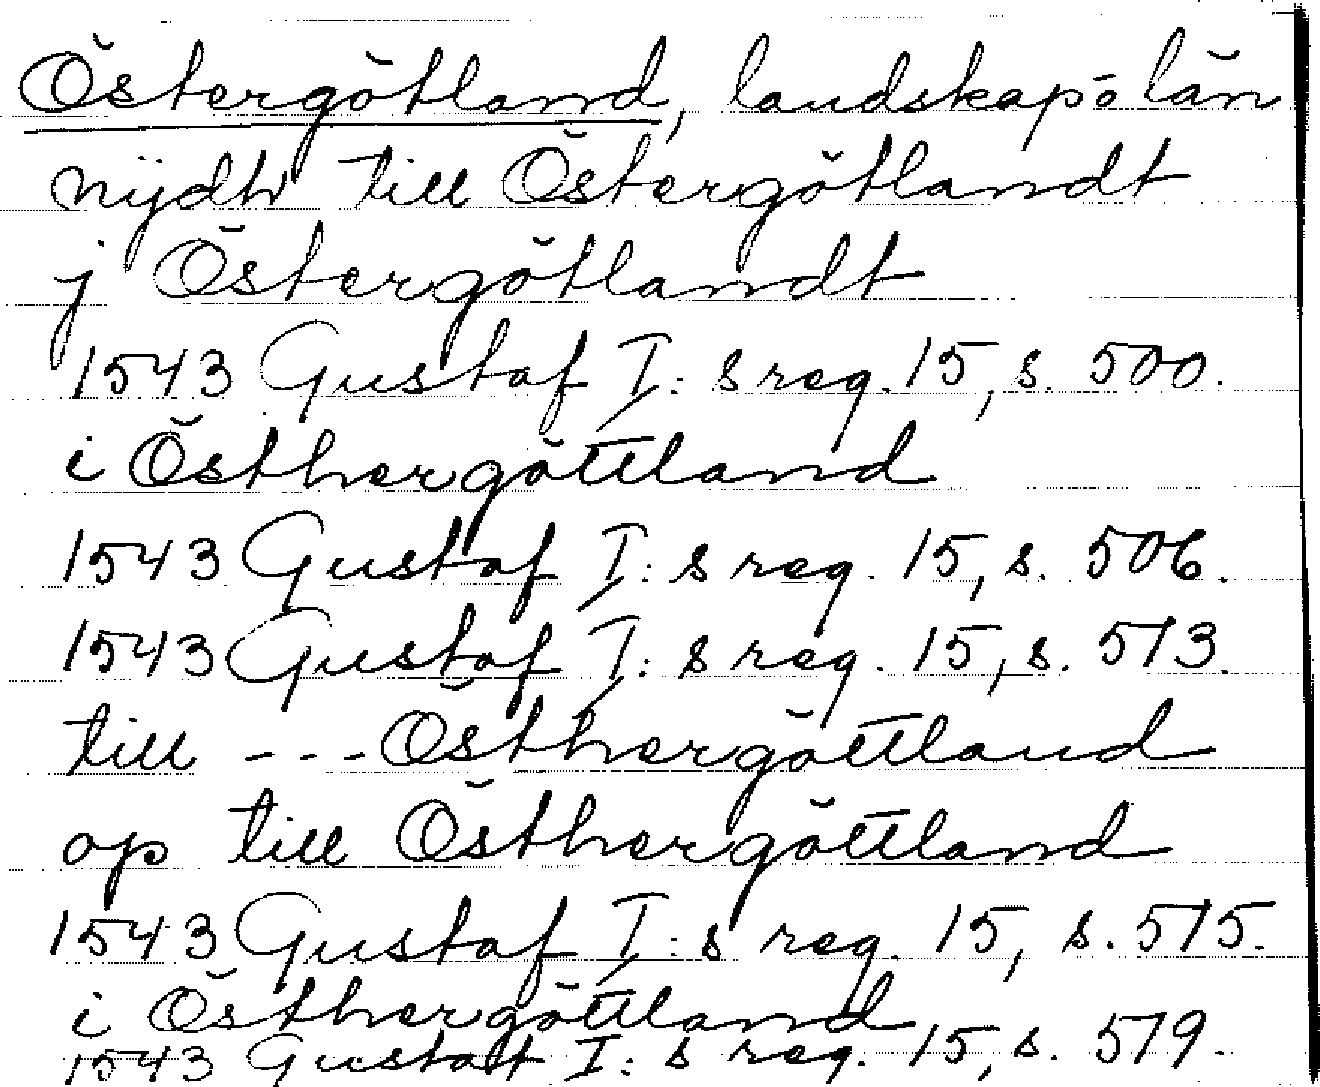 Östergötland, landskap o län
nijdh till Östergötlandt
j Östergötlandt
1543 Gustaf I: s reg. 15, s. 500.
i Östhergöttland
1543 Gustaf I: s reg. 15, s. 506.
1543 Gustaf I: s reg. 15, s. 513.
till --- Östhergöttland
op till Östhergöttland
1543 Gustaf I: s reg. 15, s. 515.
i Östhergöttland
1543 Gustaf I: s reg. 15, s. 519.